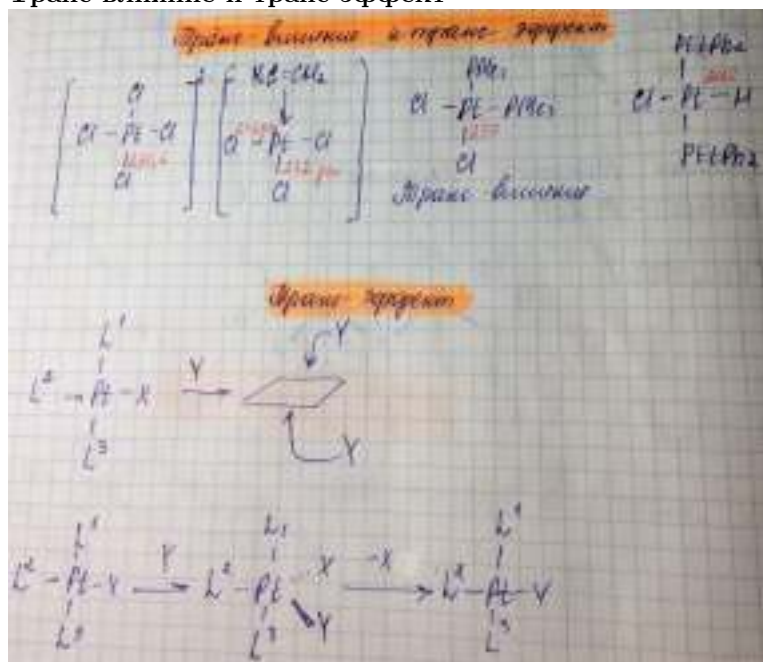 Транс влияние и транс эффект
Транс-влияние и транс-эффект
Cl
Cl - Pt - Cl
Cl
2-
H2C=CH2
Cl - Pt - Cl
Cl
-
Cl - Pt - PEt3
237
Cl
Транс влияние
PEtPh2
Cl - Pt - H
PEtPh2
Транс-эффект
L1
L2 - Pt - X
L3
Y
Y
Y
L1
L2 - Pt - X
L3
Y
L1
L2 - Pt
X
Y
L3
-X
L1
L2 - Pt - Y
L3